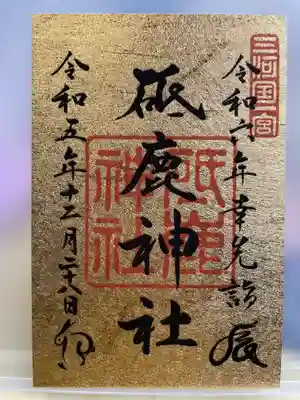 三河国一宮
令和六年幸先詣 辰
砥鹿神社
砥鹿神社
令和五年十二月二十八日